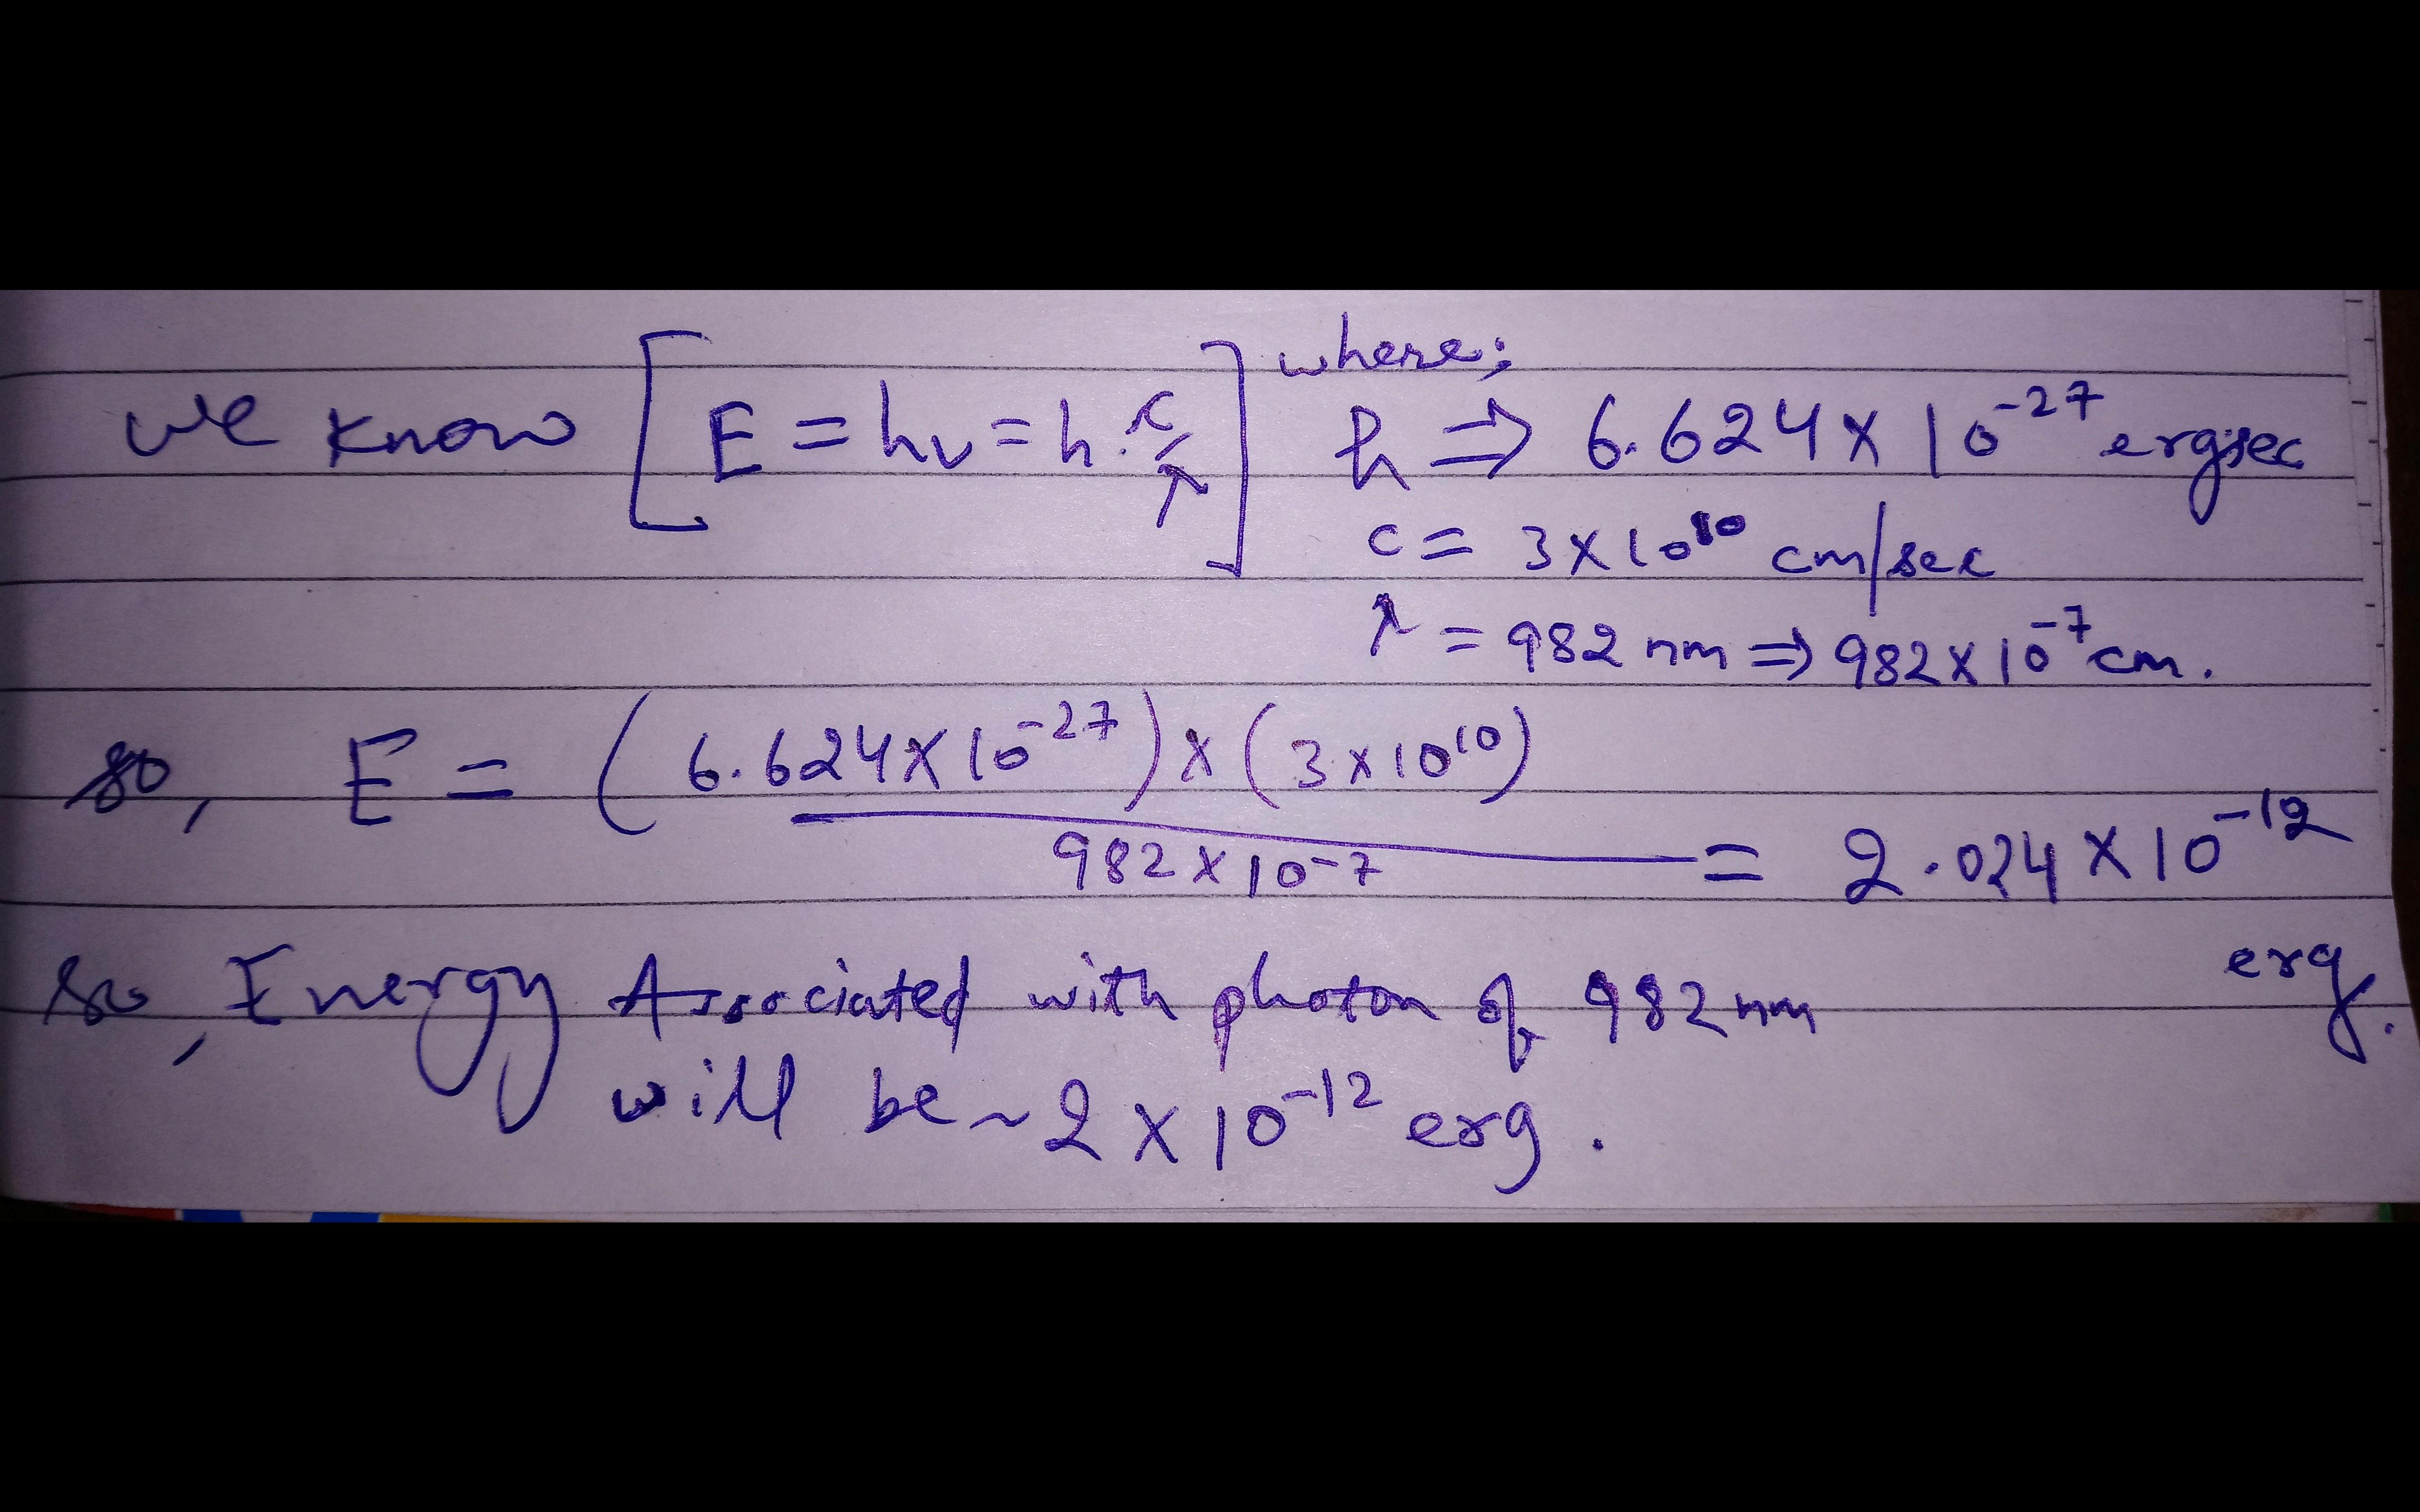 we know [E = hν = h.c/λ] where;
h ⇒ 6.624 x 10⁻²⁷ ergsec
c = 3 x 10¹⁰ cm/sec
λ = 982 nm ⇒ 982 x 10⁻⁷ cm.
so, E = (6.624 x 10⁻²⁷) x (3 x 10¹⁰)
982 x 10⁻⁷ = 2.024 x 10⁻¹² erg.
so, Energy Associated with photon of 982 nm
will be ~ 2 x 10⁻¹² erg.